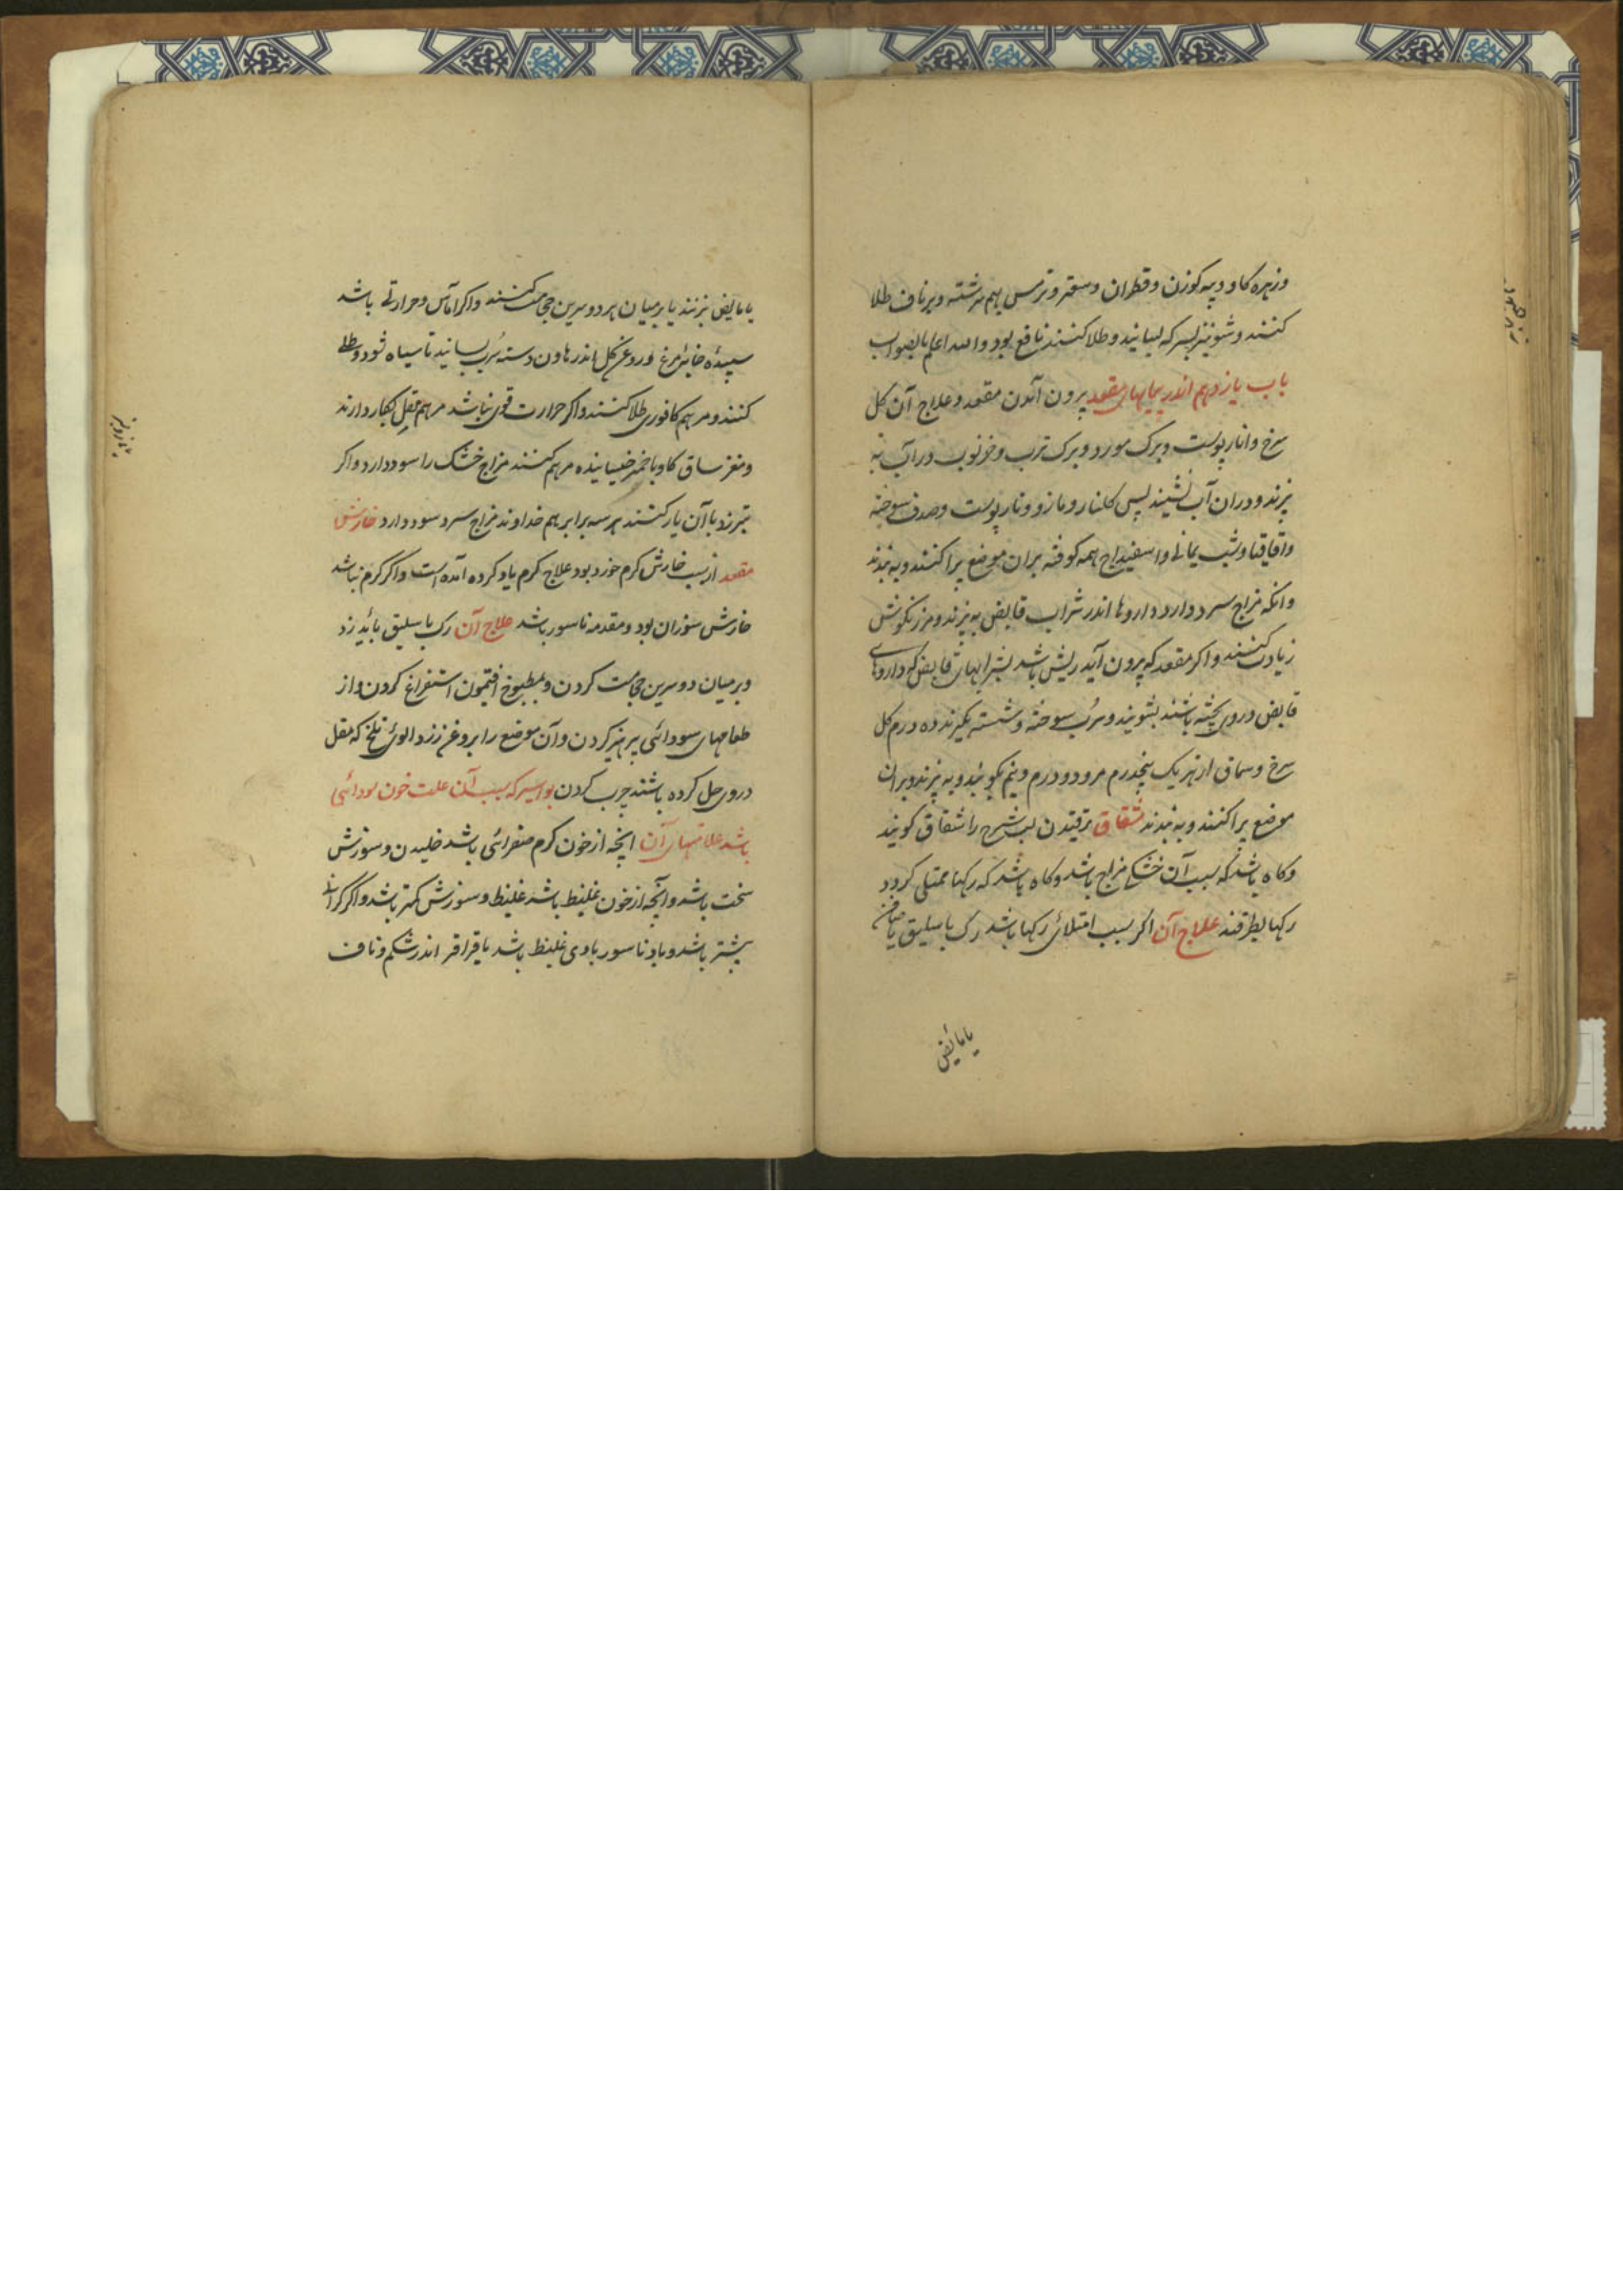 وزهره کاو و پیه کوزن و قطران و سعتر و ترمس بهم سرشته و برناف طلا
کنند و شونیز بسرکه بسایند و طلا کنند نافع بود والله اعلم بالصواب
باب یازدهم اندر بیماریهای مقعد بیرون آمدن مقعد و علاج آن کل
سرخ و انار پوست و برک مورد و برک ترب و خرنوب در آب به
پزند و دران آب نشیند پس کلنار و مازو و نار پوست و صدف سوخته
و اقاقیا و شب یمانی و اسفیداج همه کوفته بران موضع پراکنند و به بندند
وانکه مزاج سرد دارد داروها اندر شراب قابض به پزند و مرزنکوش
زیادت کنند و اکر مقعد که بیرون آید ریش باشد بشرابهای قابض که داروهای
قابض در وی پخته باشند بشویند و سرب سوخته و شسته بکیرند ده درم کل
سرخ و سماق از هر یک پنجدرم مر دو درم و نیم بکوبند و به پزند و بران
موضع پراکنند و به بندند شقاق ترقیدن لب شرج را شقاق کویند
وکاه باشد که سبب آن خشکی مزاج باشد و کاه باشد که رکها ممتلی کردد
رکها بطرقند علاج آن اکر سبب امتلائی رکها باشد رک باسلیق یا صافن
یا مابض
یا مابض بزنند یا بر میان هر دو سرین حجامت کنند و اکر آماس و حرارتی باشد
سپیده خایه مرغ و روغن کل اندر هاون و دسته سرب بسایند تا سیاه شود و طلی
کنند و مرهم کافوری طلا کنند و اکر حرارت قوی نباشد مرهم مقل بکار دارند
و مغز ساق کاو با خمیر خیسانیده مرهم کنند مزاج خشک را سود دارد و اکر
تبرزد با آن یار کنند هر سه برابر هم خداوند مزاج سرد سود دارد خارش
مقعد از سبب خارش کرم خورد بود علاج کرم یاد کرده آمده است و اکر کرم نباشد
خارش سوزان بود و مقدمه ناسور باشد علاج آن رک باسلیق بائید زد
و بر میان دو سرین حجامت کردن و بمطبوخ افتیمون استفراغ کردن و از
طعامهای سودائی پرهیز کردن و آن موضع را بروغن زردالوی تلخ که مقل
در وی حل کرده باشند چرب کردن بواسیر که سبب آن علت خون سودائی
باشد علامتهای آن انچه از خون کرم صفرائی باشد خلیدن و سوزش
سخت باشد و آنچه از خون غلیظ باشد غلیظ و سوزش کمتر باشد و اکر کرانی
بیشتر باشد و باد ناسور بادی غلیظ باشد با قراقر اندر شکم و ناف